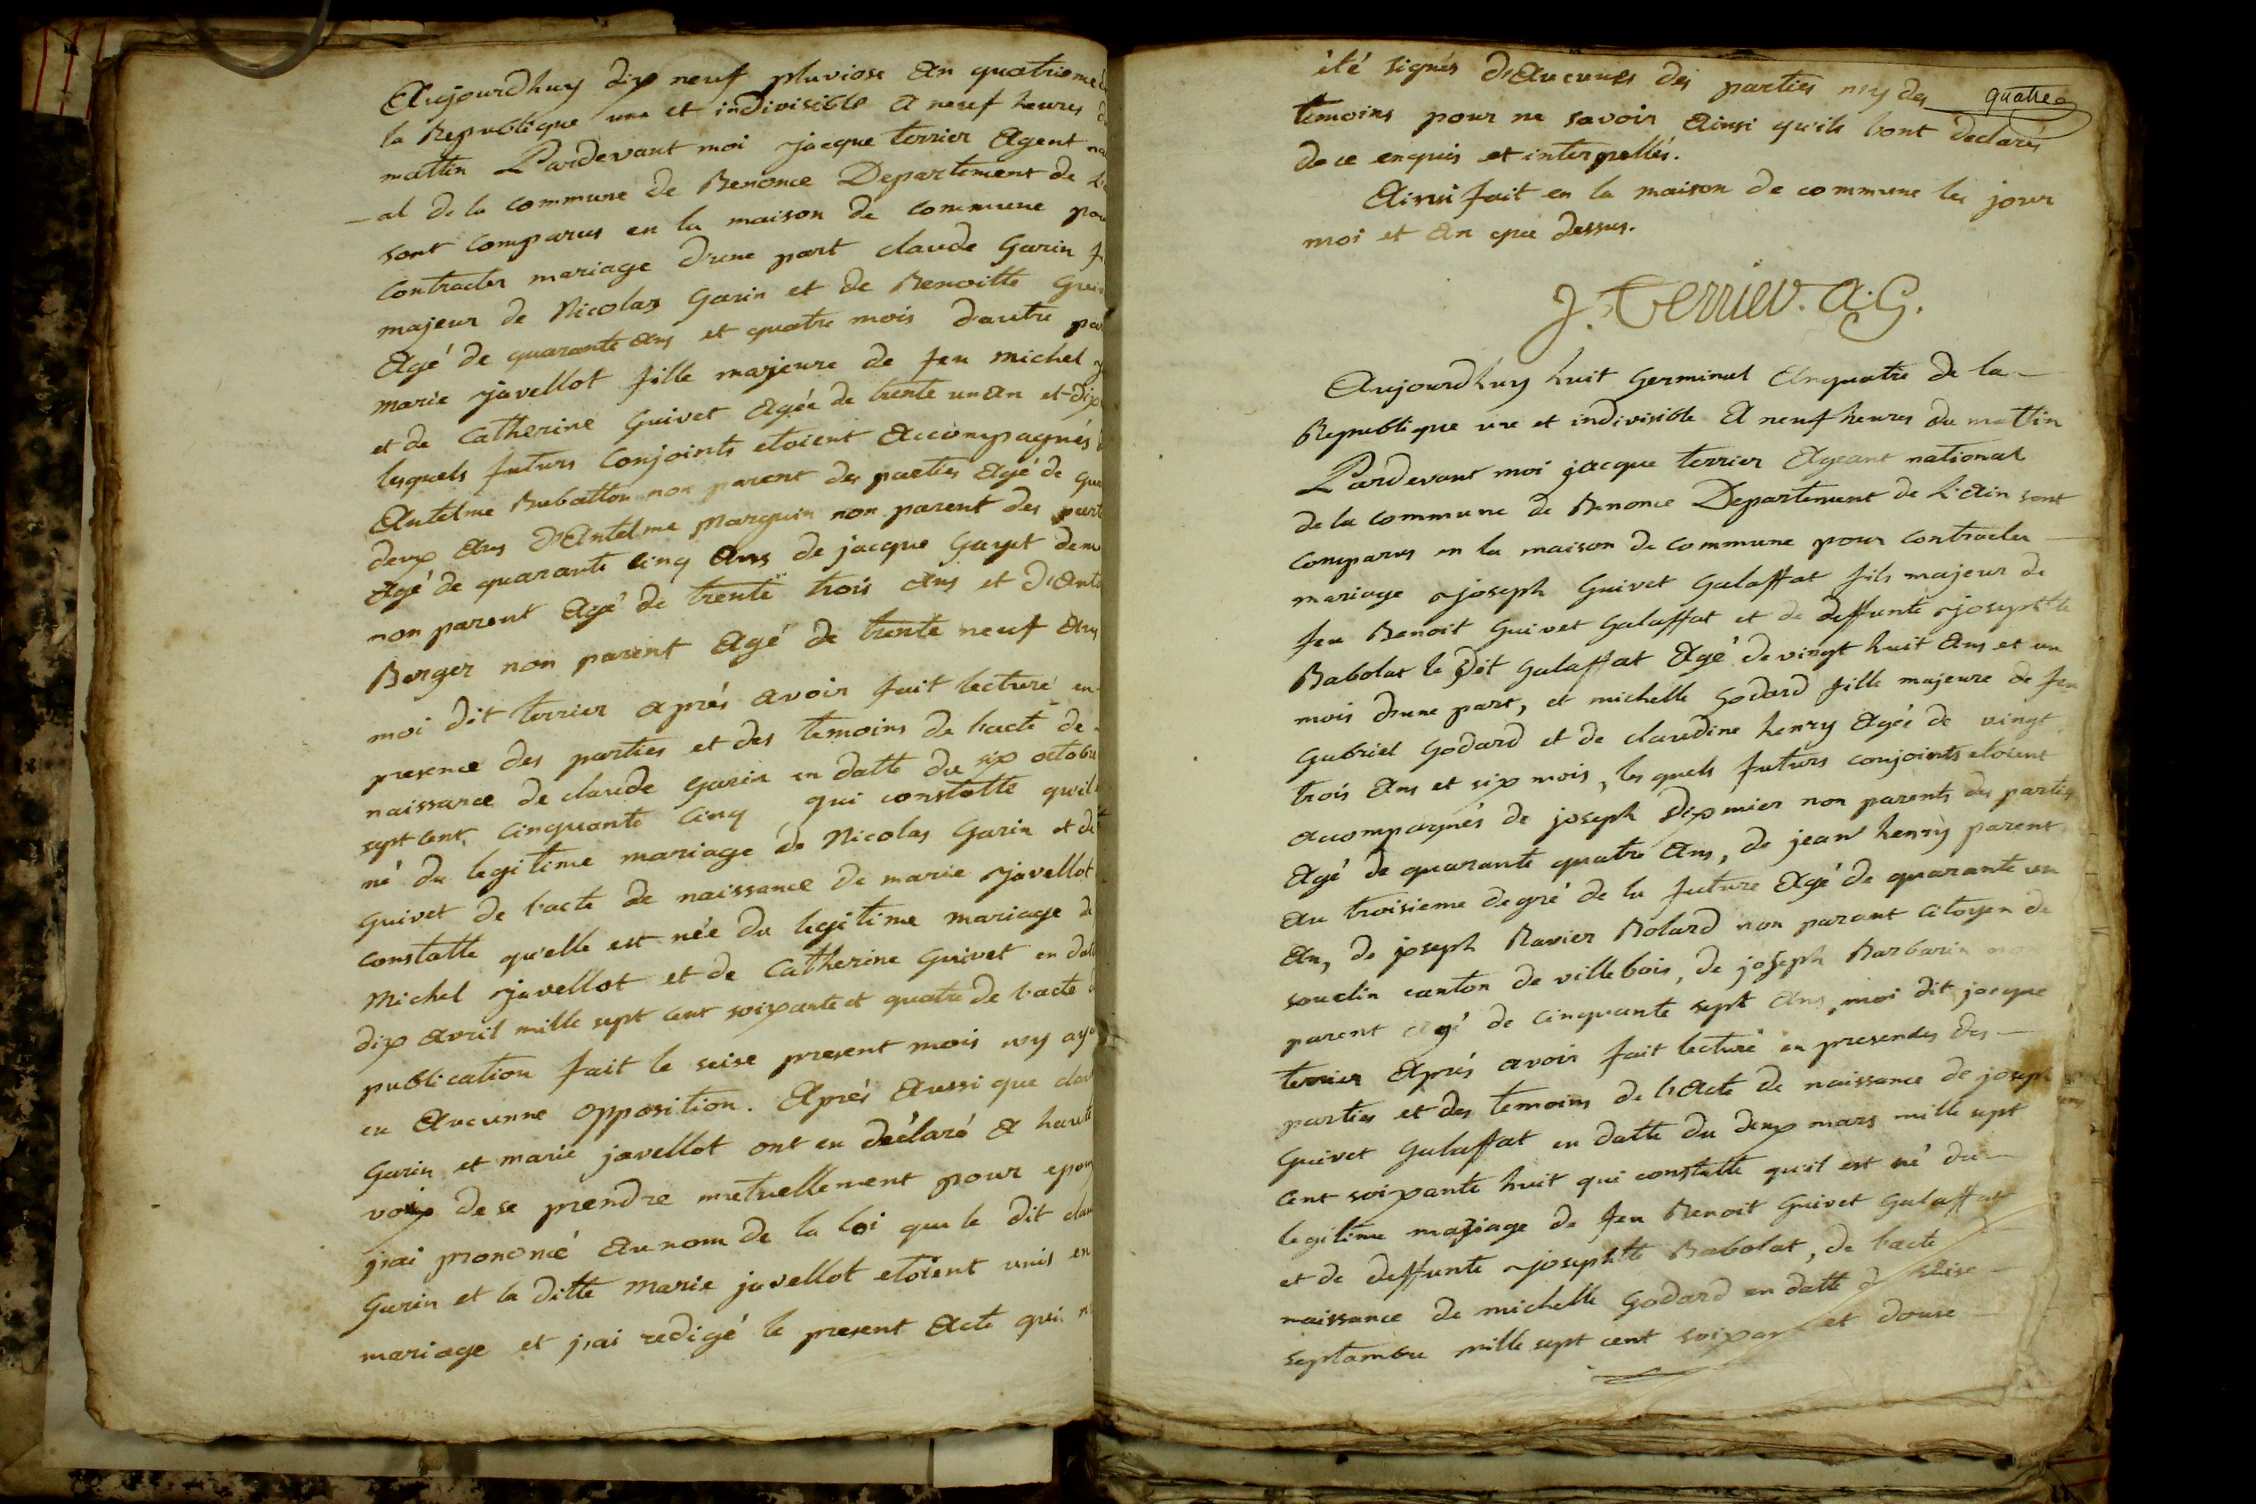 Aujourdhuy dix neuf pluviose An quatrieme de
la Republique une et indivisible A neuf heures d
mattin Pardevant moi jacque terrier Agent na
_al de la commune de Benonce Departement de L'a
sont comparus en la maison de commune pou
contracter mariage d'une part claude Garin f
majeur de Nicolas Garin et de Benoitte Gui
Agé de quarante ans et quatre mois d'autre par
marie javellot fille majeure de feu michel j
et de Catherine Guivet Agée de trente un an et dix
lesquels futurs Conjoints etoient Accompagnés d
Antelme non parent des parties Agé de qua
deux Ans d'Antelme Marguin non parent des part
Agé de quarante cinq Ans de jacque Gayet dem
non parent Agé de trente trois Ans et d'Ant
Berger non parent Agé de trente neuf Ans
moi dit terrier après avoir fait lecture en
presence des parties et des temoins de l'acte de
naissance de claude Garin en datte du six octobre
sept cent cinquante cinq qui constatte qu'il
né du legitime mariage de Nicolas Garin et de
Guivet de l'acte de naissance de marie javellot
constatte qu'elle est née du legitime mariage de
Michel javellot et de Catherine Guivet en datte
dix avril mille sept cent soixante et quatre de l'acte d
publication fait le seise present mois ny aya
eu Aucunne opposition. Après Aussi que clau
Garin et marie javellot ont eu déclaré A haute
voix de se prendre mutuellement pour epou
j'ai prononcé Au nom de la loi que le dit clau
Garin et la ditte Marie javellot etoient unis en
mariage et j'ai redigé le present Acte qui n
été signés d'Aucunes des parties ny des quatre
temoins pour ne savoir Ainsi qu'ils l'ont déclarés
de ce enquis et interpellés.
Ainsi fait en la maison de commune les jour
moi et An que dessus.
J. Terrier. A. G.
Aujourdhuy huit Germinal An quatre de la
Republique une et indivisible A neuf heures du mattin
Pardevant moi jacque terrier Ageant national
de la commune de Benonce Departement de L'Ain sont
comparus en la maison de commune pour contracter
mariage joseph Guivet Galaffat fils majeur de
feu Benoit Guivet Galaffat et de deffunte josephtte
Babolat le dit Galaffat Agé de vingt huit Ans et un
mois d'une part, et michelle Godard fille majeure de feu
Gabriel Godard et de claudine henry Agée de vingt
trois Ans et six mois, les quels futurs conjoints etoient
accompagnés de joseph Dixmier non parents des parties
Agé de quarante quatre Ans, de jean henry parent
Au troisieme degré de la future Agé de quarante un
An, de joseph Ravier Bolard non parant citoyen de
souclin canton de villebois, de joseph Barbarin non
parent agé de cinquante sept Ans, moi dit jacque
terrier Après avoir fait lecture en presendes des
parties et des temoins de l'Acte de naissance de joseph
Guivet Galaffat en datte du deux mars mille sept
cent soixante huit qui constatte qu'il est né du
legitime mariage de feu Benoit Guivet Galaffat
et de deffunte josephtte Babolat, de l'acte
naissance de michelle Godard en datte d seise
septambre mille sept cent soixan et douse